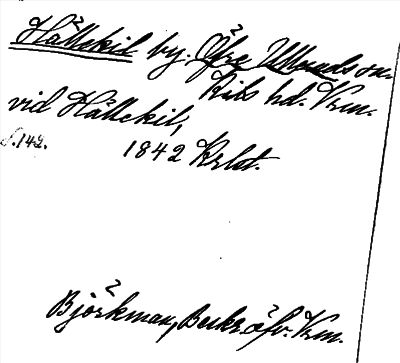 Hällekil by. Öfre Ulleruds sn.
Kils hd. Vrm.
vid Hällekil,
s. 142. 1842 Krlst.
Björkman, Beskr. öfv. Vrm.